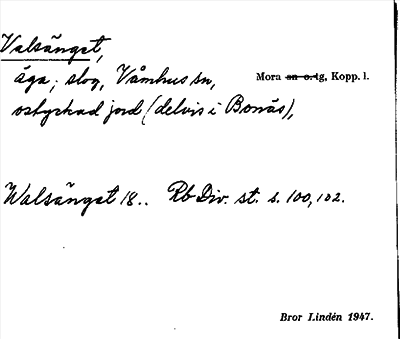 Valsänget,
äga; slog, Våmhus sn, Mora sn o. tg, Kopp. l.
ostyckad jord (delvis i Bonäs),
Walsänget 18.. Rb Div. st. s. 100, 102.
Bror Lindén 1947.